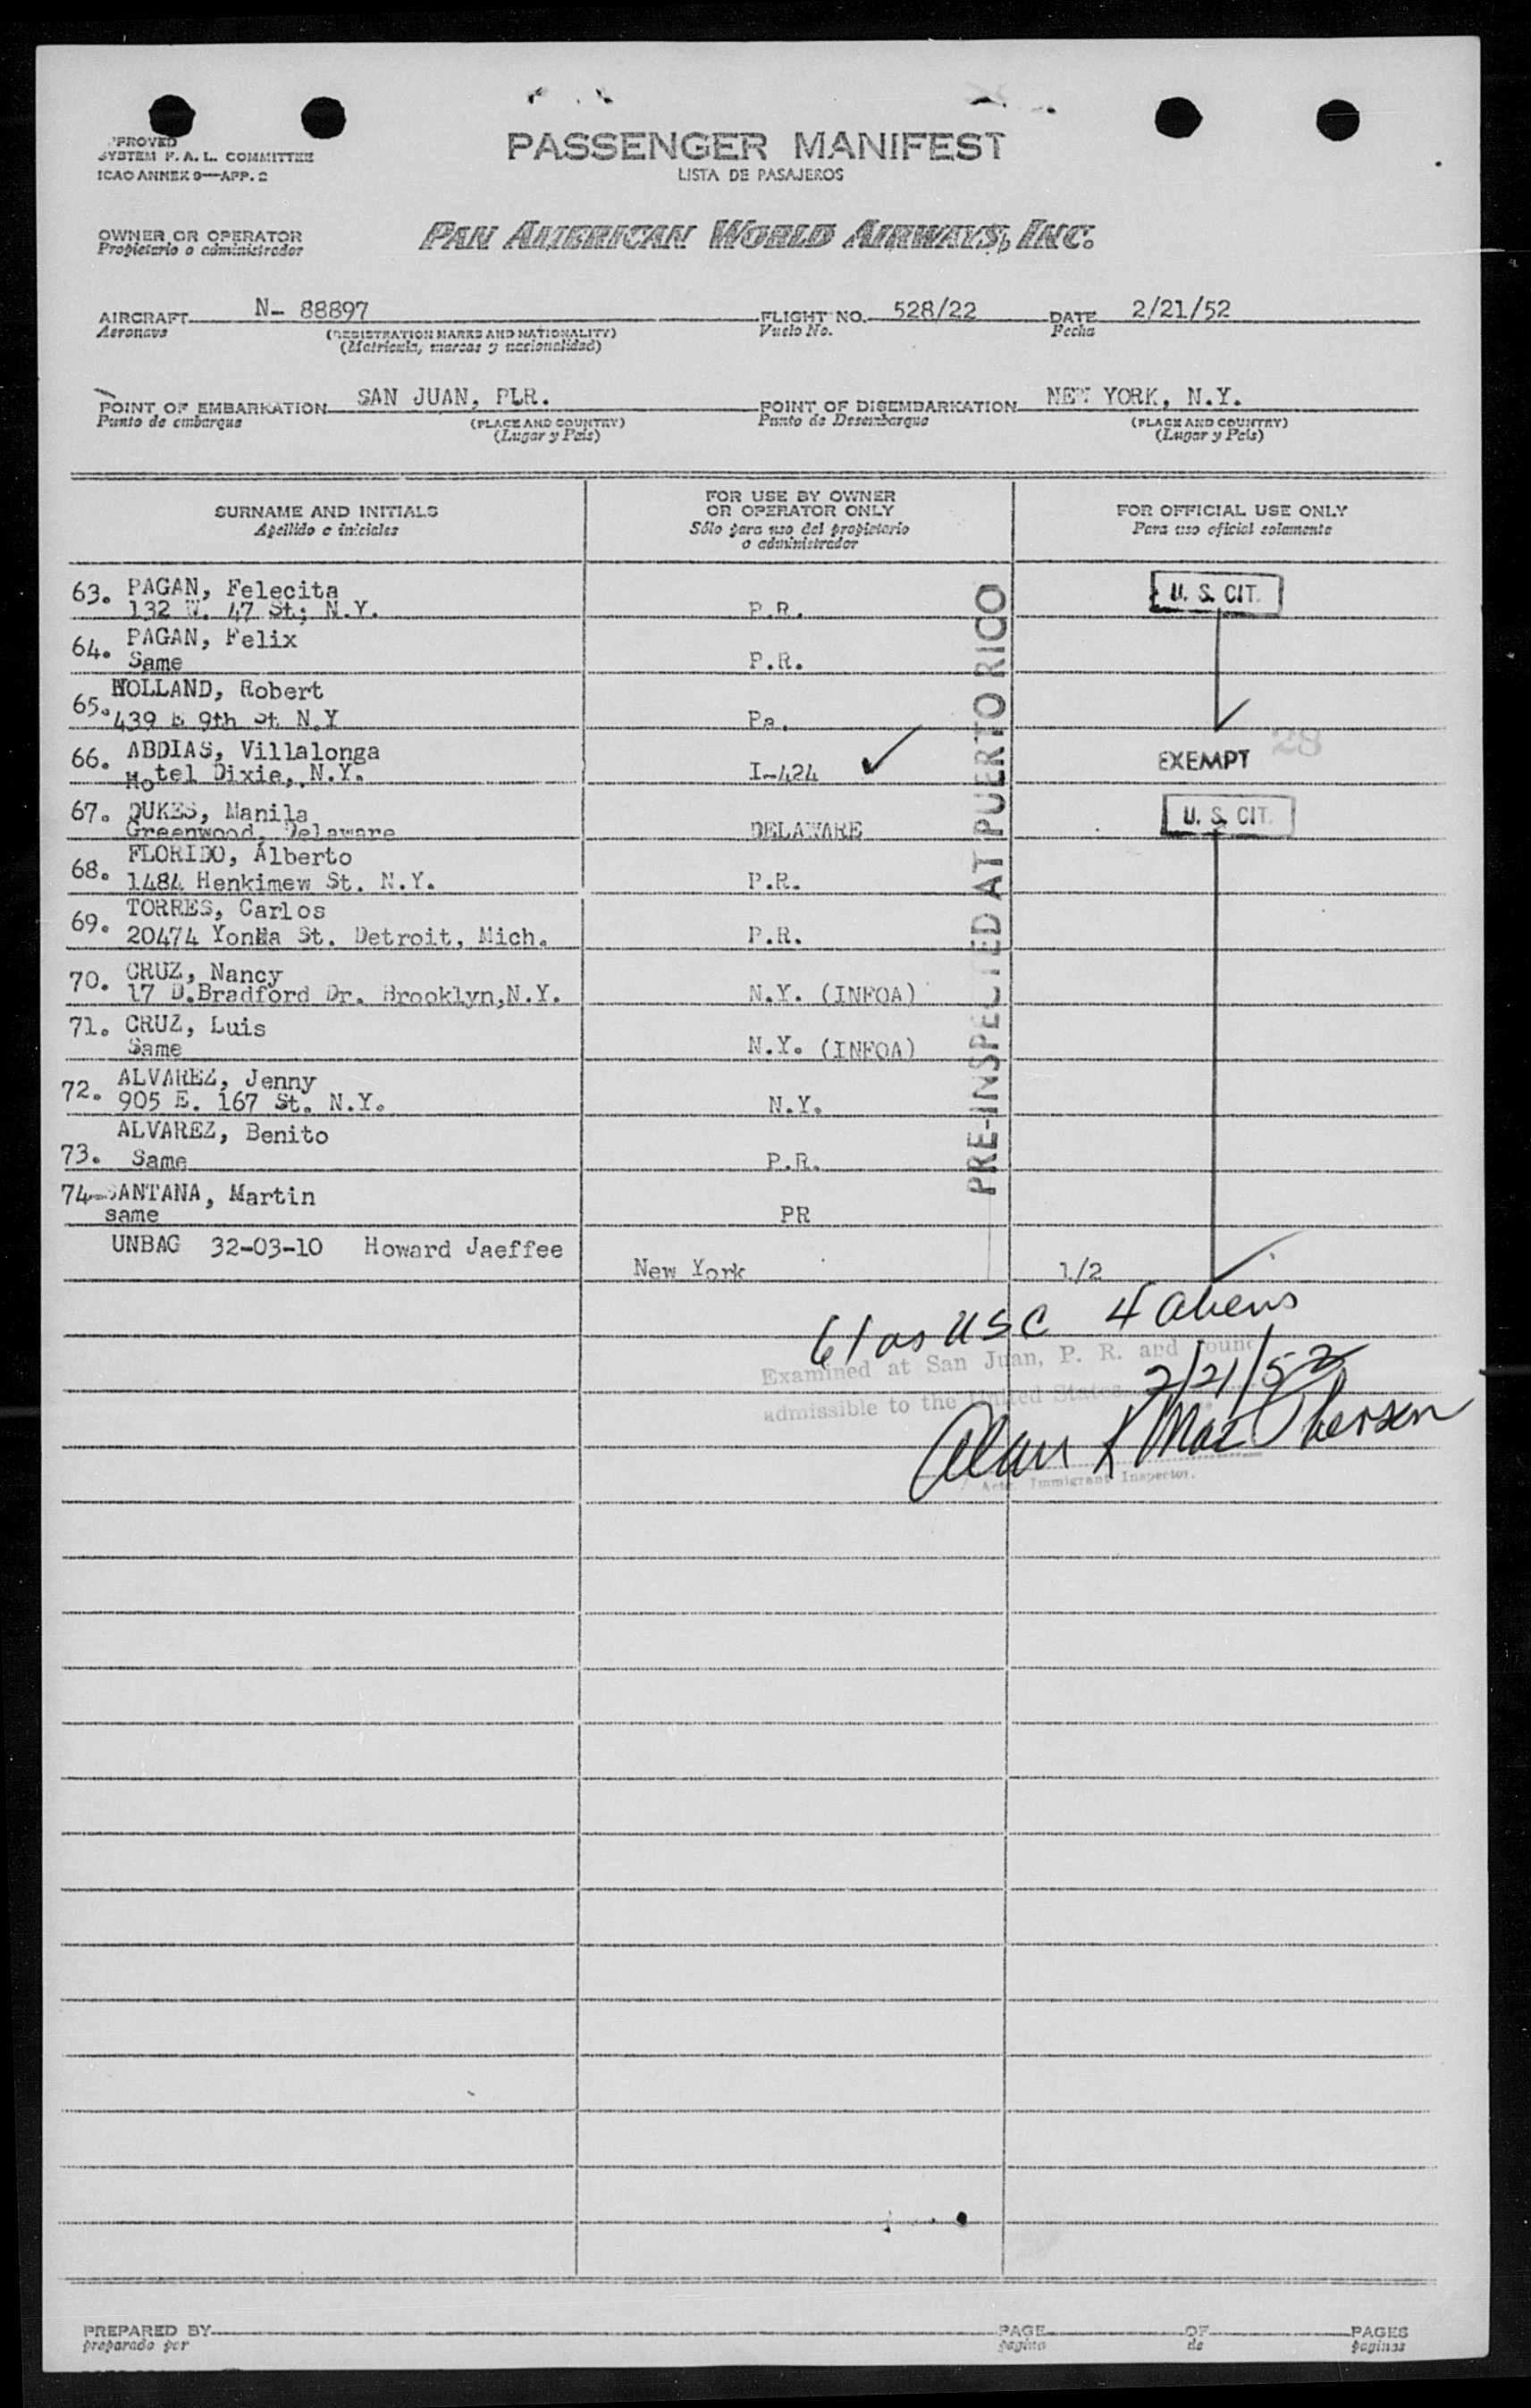 PROVED
SYSTEM F. A. L. COMMITTEE
ICAO ANNEX 9—APP. 2
PASSENGER MANIFEST
LISTA DE PASAJEROS
OWNER OR OPERATOR
Propietario o administrador
PAN AMERICAN WORLD AIRWAYS, INC.
AIRCRAFT N- 88897 FLIGHT NO. 528/22 DATE 2/21/52
Aeronave (REGISTRATION MARKS AND NATIONALITY) Vuelo No. Fecha
(Matrícula, marcas y nacionalidad)
POINT OF EMBARKATION SAN JUAN, PLR. POINT OF DISEMBARKATION NEW YORK, N.Y.
Punto de embarque (PLACE AND COUNTRY) Punto de Desembarque (PLACE AND COUNTRY)
(Lugar y País) (Lugar y País)
SURNAME AND INITIALS
Apellido e iniciales
FOR USE BY OWNER
OR OPERATOR ONLY
Sólo para uso del propietario
o administrador
FOR OFFICIAL USE ONLY
Para uso oficial solamente
63. PAGAN, Felecita U. S. CIT.
132 W. 47 St; N.Y. P.R.
64. PAGAN, Felix
Same P.R.
65. HOLLAND, Robert
439 E 9th St N.Y Pa.
66. ABDIAS, Villalonga EXEMPT 28
Hotel Dixie, N.Y. I-424
67. DUKES, Manila U. S. CIT.
Greenwood, Delaware DELAWARE
68. FLORIDO, Alberto
1484 Henkimew St. N.Y. P.R.
69. TORRES, Carlos
20474 Yonka St. Detroit, Mich. P.R.
70. CRUZ, Nancy
17 D.Bradford Dr. Brooklyn,N.Y. N.Y. (INFOA)
71. CRUZ, Luis
Same N.Y. (INFOA)
72. ALVAREZ, Jenny
905 E. 167 St. N.Y. N.Y.
ALVAREZ, Benito
73. Same P.R.
74-SANTANA, Martin
same PR
UNBAG 32-03-10 Howard Jaeffee
New York 1/2
PRE-INSPECTED AT PUERTO RICO
61 as USC 4 aliens
Examined at San Juan, P. R. and found
2/21/52
admissible to the United States
Alan K MacPherson
Actg. Immigrant Inspector.
PREPARED BY PAGE OF PAGES
preparado por página de páginas